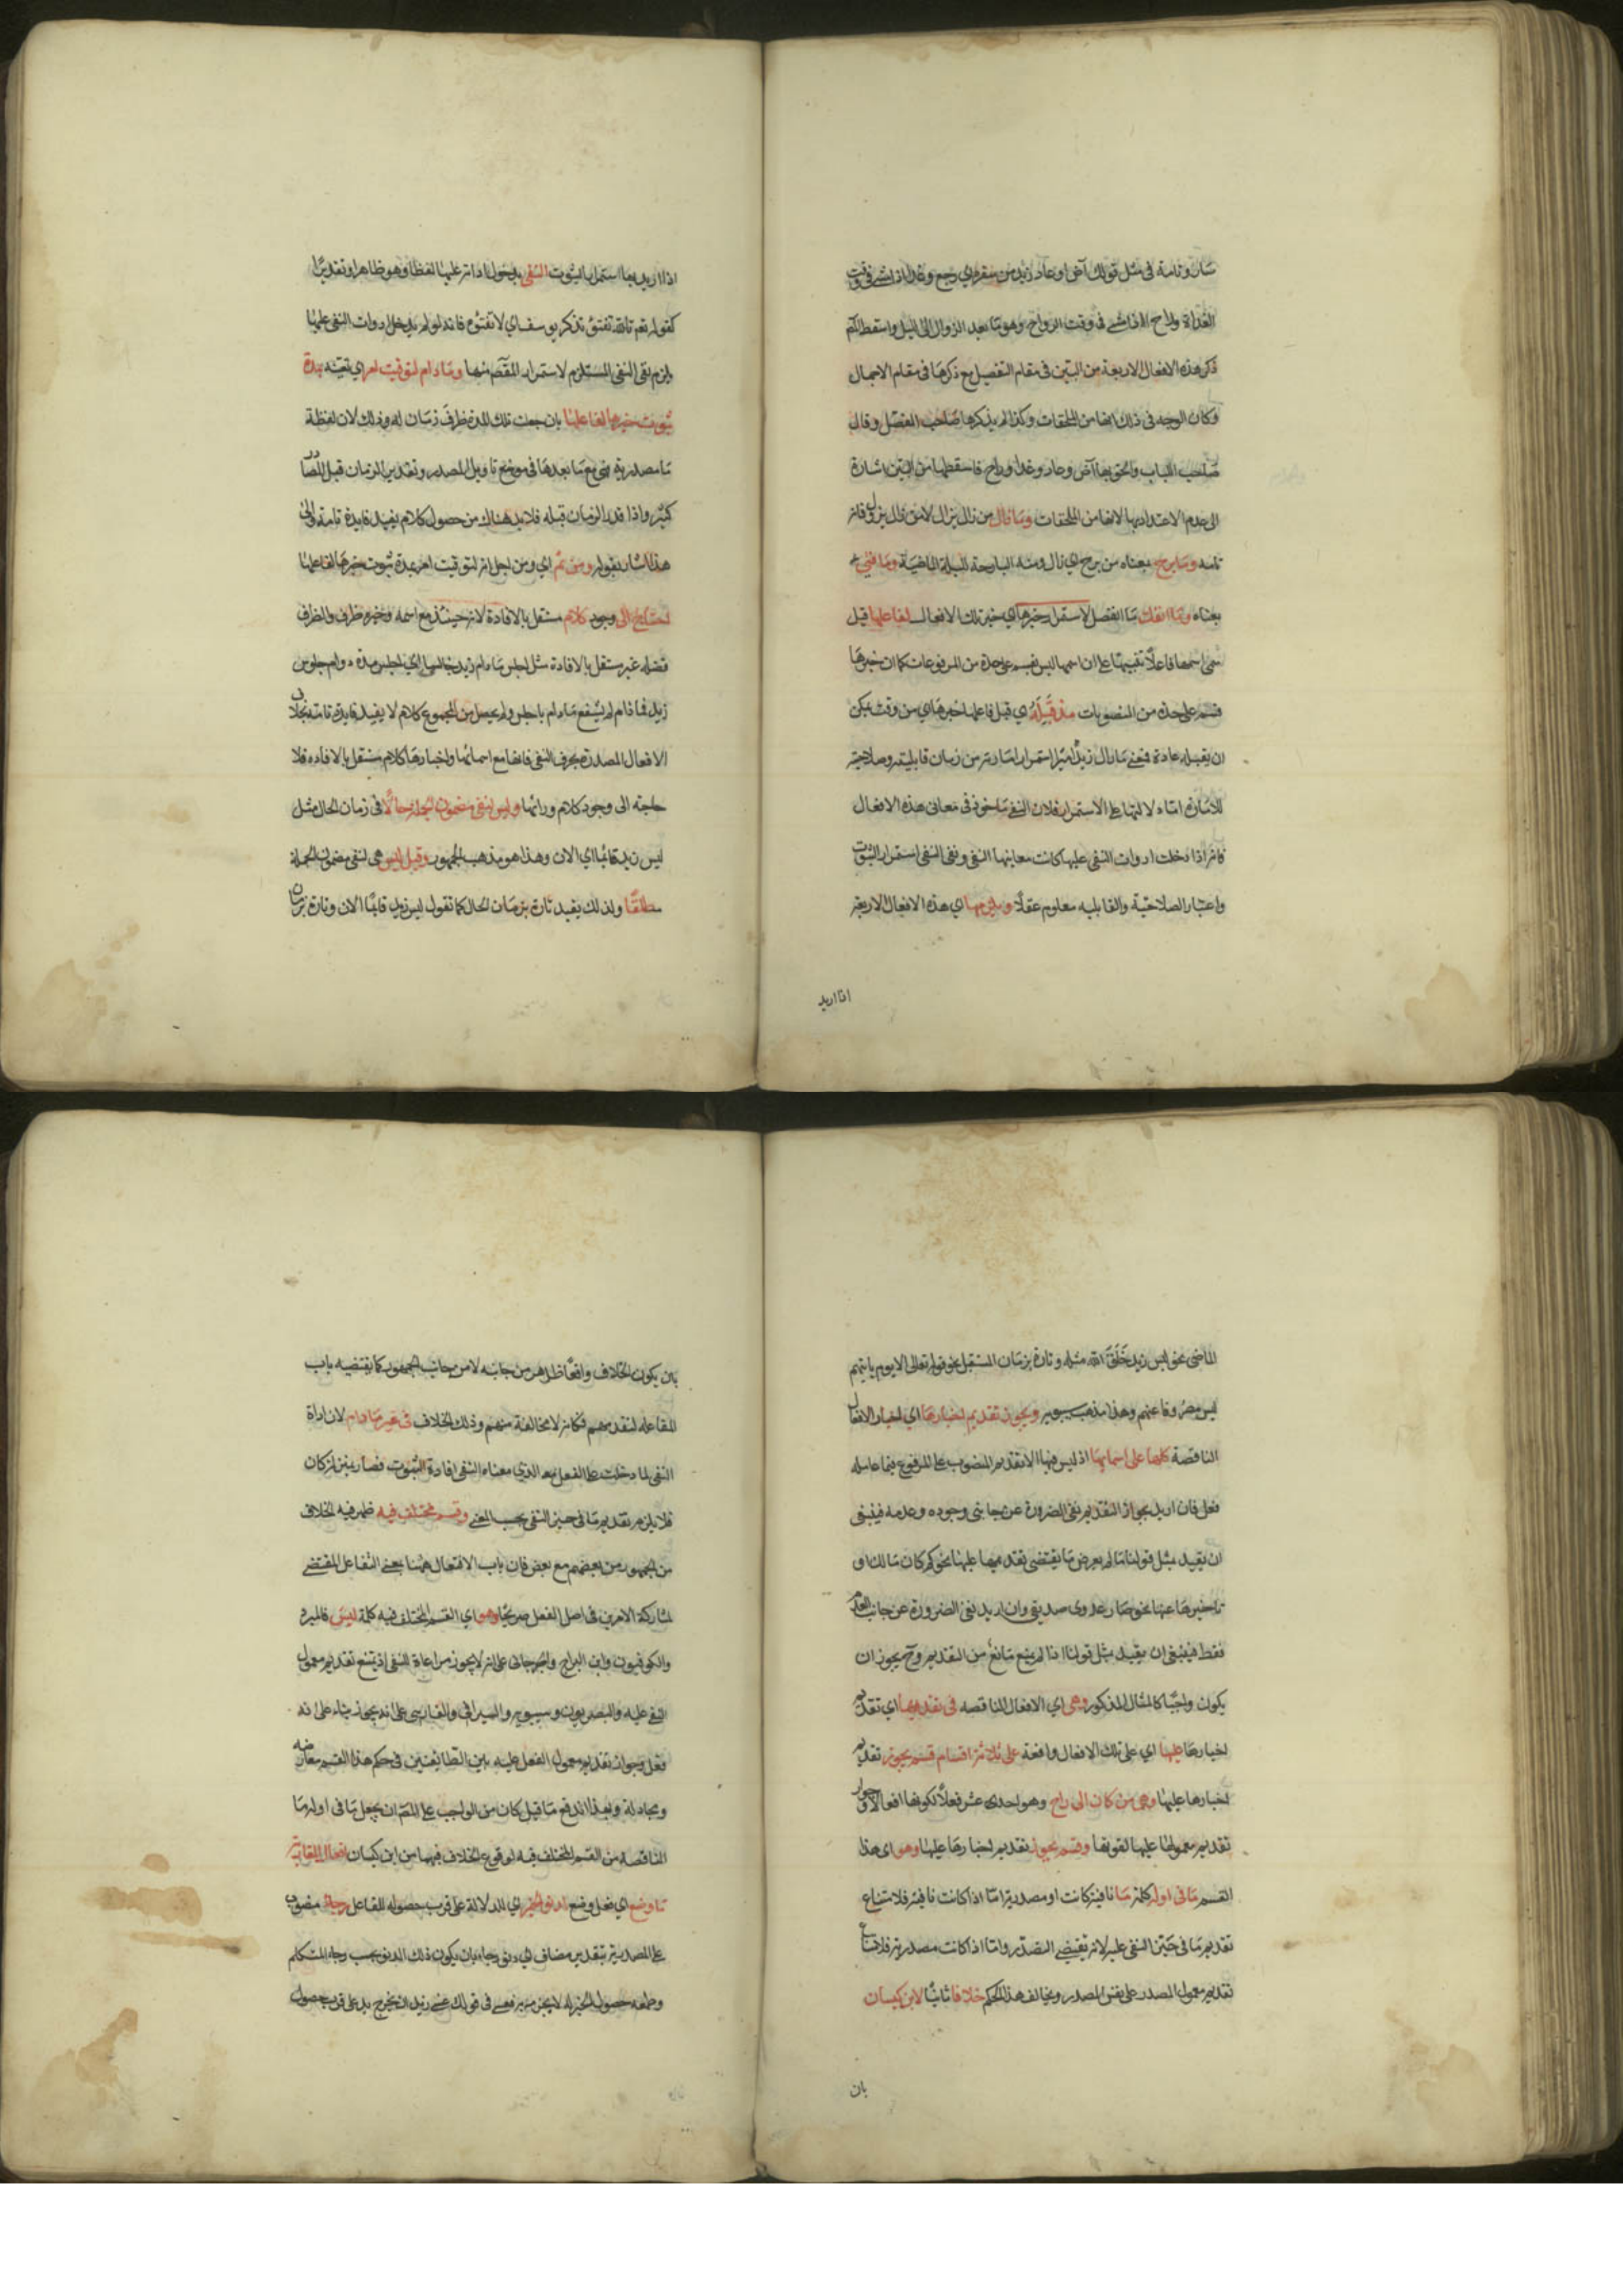 شان وتامة فى مثل قولك آض او عاد زيد من سفره اي رجع وغدا اذا مشى فى وقت
الغداة وراح اذا مشى فى وقت الرواح وهو ما بعد الزوال الى الليل واسقط المصنف
ذكر هذه الافعال الاربعة من البين فى مقام التفصيل مع ذكرها فى مقام الاجمال
وكان الوجه فى ذلك انها من الملحقات وكذا لم يذكرها صاحب المفصل وقال
صاحب اللباب والحق بها آض وعاد وغدا وراح فاسقطها من البين اشارة
الى عدم الاعتداد بها لانها من الملحقات وما زال من زال يزال لا من زال يزول فانه
تامه وما برح بمعناه من برح اي زال ومنه البارحة لليلة الماضية وما فتئ
بمعناه وما انفك ما انفصل لاستمرار خبرها اي خبر تلك الافعال لفاعلها قيل
سمى اسمها فاعلا تنبيها على ان اسمها ليس قسم على حدة من المرفوعات كما ان خبرها
قسم على حدة من المنصوبات مذ قبله اي قبل فاعلها خبرها اي من وقت يمكن
ان يقبله عادة فمعنى ما زال زيد اميرا استمرار امارته من زمان قابليته وصلاحيته
للامارة اما دلالتها على الاستمرار فلان النفى ماخوذ فى معانى هذه الافعال
فانه اذا دخلت ادوات النفى عليها كانت معانيها النفى ونفى النفى استمرار الثبوت
واعتبار الصلاحية والقابليه معلوم عقلا ويلزمها اي هذه الافعال الاربعة
اذا اريد
اذا اريد بها استمرار الثبوت النفى بدخول ادواته عليها لفظا وهو ظاهر او تقديرا
كقوله تعم تالله تفتؤ تذكر يوسف اي لا تفتؤ فانه لو لم يدخل ادوات النفى عليها
لم يلزم نفى النفى المستلزم لاستمرار المقصم منها وما دام لتوقيت امر اي تعيينه بمدة
ثبوت خبرها لفاعلها بان جعلت تلك المدة ظرف زمان له وذلك لان لفظة
ما مصدرية فهى مع ما بعدها فى موضع تاويل المصدر وتقدير الزمان قبل المصادر
كثير واذا قدر الزمان قبله فلا بد هناك من حصول كلام يفيد فايدة تامة والى
هذا اشار بقوله ومن ثم اي ومن اجل انه لتوقيت امر بمدة ثبوت خبرها لفاعلها
احتاج الى وجود كلام مستقل بالافادة لانه حينئذ مع اسمه وخبره ظرف والظرف
فضله غير مستقل بالافادة مثل اجلس ما دام زيد جالسا اي اجلس مدة دوام جلوس
زيد فما دام لم يشفع ما دام باجلس ولم يحصل من المجموع كلام لا يفيد فايدة تامة بخلاف
الافعال المصدرة بحرف النفى فانها مع اسمائها واخبارها كلام مستقل بالافاده فلا
حاجة الى وجود كلام ورائها وليس لنفى مضمون الجملة حالا فى زمان الحال مثل
ليس زيد قائما اي الان وهذا هو مذهب الجمهور وقيل ليس هى لنفى مضمون الجملة
مطلقا ولذلك يقيد تارة بزمان الحال كما تقول ليس زيد قايما الان وتارة بزمان
الماضى نحو ليس زيد خلق الله مثله وتارة بزمان المستقبل نحو قوله تعالى الا يوم ياتيهم
ليس مصروفا عنهم وهذا مذهب سيبويه ويجوز تقديم اخبارها اي اخبار الافعال
الناقصة كلها على اسمايها اذ ليس فيها الا تقديم المنصوب على المرفوع فيما عامله
فعل فان اريد بجواز التقديم نفى الضرورة عن جانبى وجوده وعدمه فينبغى
ان يقيد بمثل قولنا ما لم يعرض ما يقتضى تقديمها عليها نحو كم كان مالك او
تاخيرها عنها نحو صار عدوى صديقى وان اريد نفى الضرورة عن جانب العدم
فقط فينبغى ان يقيد بمثل قولنا اذا لم يمنع مانع من التقديم وح يجوز ان
يكون واجبا كالمثال المذكور وهى اي الافعال الناقصه فى تقديمها اي تقديم
اخبارها عليها اي على تلك الافعال واقعة على ثلاثة اقسام قسم يجوز تقديم
اخبارها عليها وهى من كان الى راح وهو احدى عشر فعلا لكونها افعالا وجواز
تقديم معمولها عليها لقوتها وقسم لا يجوز تقديم اخبارها عليها وهو اى هذا
القسم ما فى اوله كلمة ما نافية كانت او مصدرية اما اذا كانت نافية فلامتناع
تقديم ما فى حيز النفى عليه لانه يقتضى التصدر واما اذا كانت مصدرية فلامتناع
تقديم معمول المصدر على نفس المصدر ويخالف هذا الحكم خلافا ثابتا لابن كيسان
بان
بان يكون الخلاف واقعا ظاهرا من جانبه لا من جانب الجمهور كما يقتضيه باب
المفاعله لتقدمهم فكانه لا مخالفة منهم وذلك الخلاف فى غير ما دام لان اداة
النفى لما دخلت على الفعل بعد الذي معناه النفى افادة الثبوت فصار بمنزلة كان
فلا يلزم تقديم ما فى حيز النفى بحسب المعنى وقسم مختلف فيه ظهر فيه الخلاف
من الجمهور من بعضهم مع بعض فان باب الافتعال ههنا بمعنى التفاعل المقتضى
لمشاركة الامرين فى اصل الفعل صريحا وهو اي القسم المختلف فيه كلمة ليس فالمبرد
والكوفيون وابن السراج والجرجانى على انه لا يجوز مراعاة للنفى اذ يمتنع تقديم معمول
النفى عليه والبصريون وسيبويه والسيرافى والفارسى على انه يجوز بناء على انه
فعل وجواز تقديم معمول الفعل عليه بين الطائفتين فى حكم هذا القسم معارضه
ومجادلة وبهذا اندفع ما قيل كان من الواجب على المصم ان يجعل ما فى اوله ما
الناقصه من القسم المختلف فيه لوقوع الخلاف فيها من ابن كيسان افعال المقاربة
ما وضع اي فعل وضع لدنو الخبر اي للدلالة على قرب حصوله للفاعل رجاء منصوب
على المصدرية بتقدير مضاف اي دنو رجاء بان يكون ذلك الدنو بحسب رجاء المتكلم
وطمعه حصول الخبر له لا بجزمه به فعسى فى قولك عسى زيد ان يخرج يدل على قرب حصول